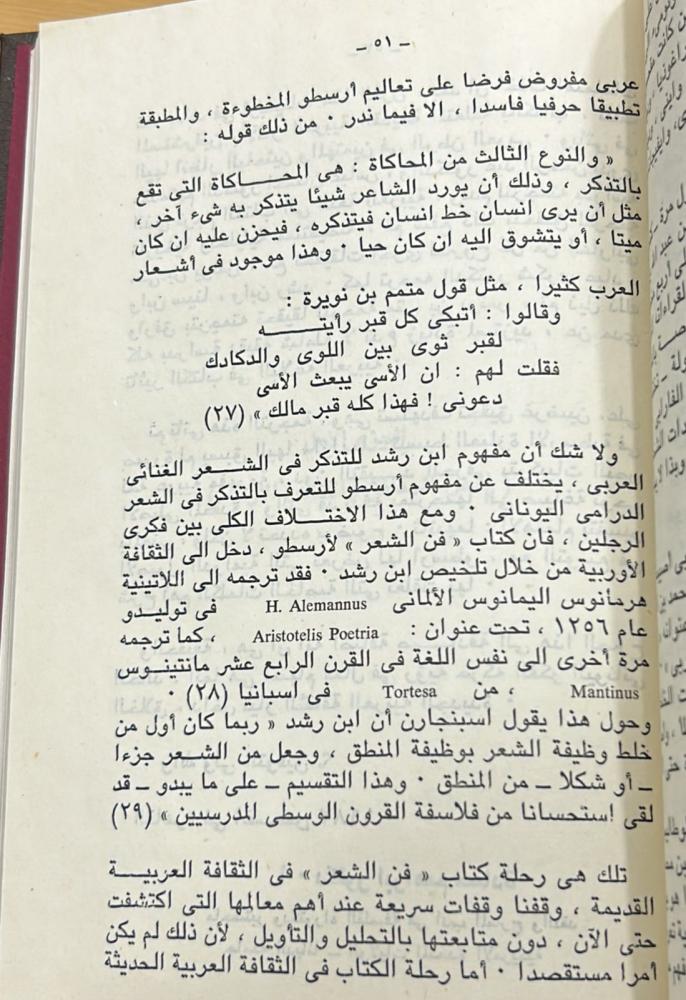 - ٥١ -
عربى مفروض فرضا على تعاليم أرسطو المخطوءة ، والمطبقة
تطبيقا حرفيا فاسدا ، الا فيما ندر · من ذلك قوله :
« والنوع الثالث من المحاكاة : هى المحـــاكاة التى تقع
بالتذكر ، وذلك أن يورد الشاعر شيئا يتذكر به شىء آخر ،
مثل أن يرى انسان خط انسان فيتذكره ، فيحزن عليه ان كان
ميتا ، أو يتشوق اليه ان كان حيا · وهذا موجود فى أشـعار
العرب كثيرا ، مثل قول متمم بن نويرة :
وقالوا : أتبكى كل قبر رأيتـــــه
لقبر ثوى بين اللوى والدكادك
فقلت لهم : ان الأسى يبعث الأسى
دعونى ! فهذا كله قبر مالك » (٢٧)
ولا شك أن مفهوم ابن رشد للتذكر فى الشـــعر الغنائى
العربى ، يختلف عن مفهوم أرسطو للتعرف بالتذكر فى الشعر
الدرامى اليونانى · ومع هذا الاختـــلاف الكلى بين فكرى
الرجلين ، فان كتاب « فن الشعر » لأرسطو ، دخل الى الثقافة
الأوربية من خلال تلخيص ابن رشد · فقد ترجمه الى اللاتينية
هرمانوس اليمانوس الألمانى H. Alemannus فى توليـدو
عام ١٢٥٦ ، تحت عنوان : Aristotelis Poetria ، كما ترجمه
مرة أخرى الى نفس اللغة فى القرن الرابع عشر مانتينـوس
Mantinus ، من Tortesa فى اسبانيا (٢٨) ·
وحول هذا يقول اسبنجارن أن ابن رشد « ربما كان أول من
خلط وظيفة الشعر بوظيفة المنطق ، وجعل من الشـعر جزءا
ــ أو شكلا ــ من المنطق · وهذا التقسيم ــ على ما يبدو ــ قد
لقى استحسانا من فلاسفة القرون الوسطى المدرسيين » (٢٩)
تلك هى رحلة كتاب « فن الشعر » فى الثقافة العربيـــة
القديمة ، وقفنا وقفات سريعة عند أهم معالمها التى اكتشفت
حتى الآن ، دون متابعتها بالتحليل والتأويل ، لأن ذلك لم يكن
أمرا مستقصدا · أما رحلة الكتاب فى الثقافة العربية الحديثة